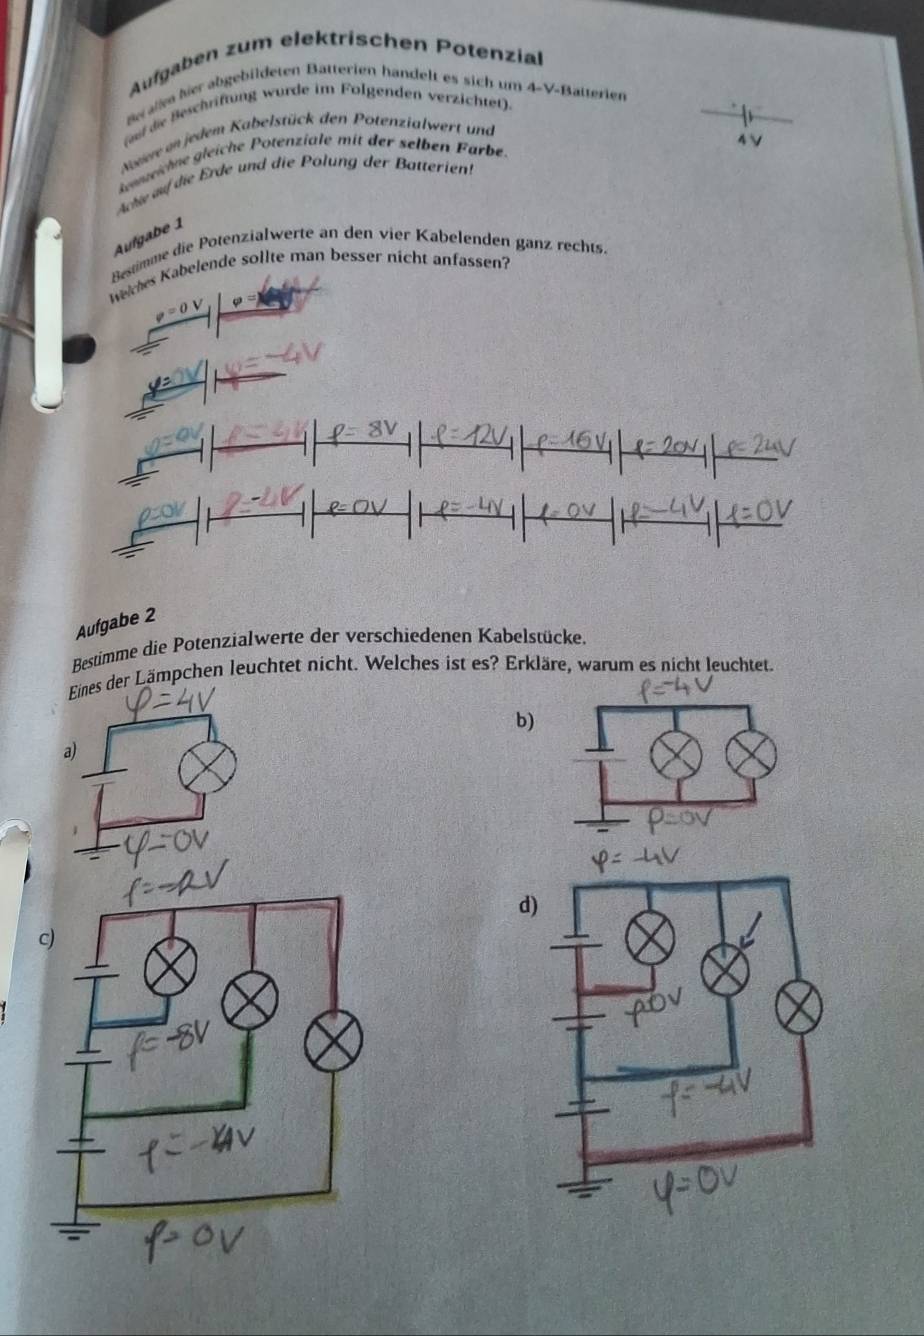 Aufgaben zum elektrischen Potenzial
Bei allen hier abgebildeten Batterien handelt es sich um 4-V-Batterien
(auf die Beschriftung wurde im Folgenden verzichtet).
4 V
Notiere an jedem Kabelstück den Potenzialwert und
kennzeichne gleiche Potenziale mit der selben Farbe.
Achte auf die Erde und die Polung der Batterien!
Aufgabe 1
Bestimme die Potenzialwerte an den vier Kabelenden ganz rechts.
Welches Kabelende sollte man besser nicht anfassen?
φ = 0 V φ =
φ=0V φ=-4V
φ=0V φ=4V φ=8V φ=12V φ=16V φ=20V φ=24V
φ=0V φ=-4V φ=0V φ=-4V φ=0V φ=-4V φ=0V
Aufgabe 2
Bestimme die Potenzialwerte der verschiedenen Kabelstücke.
Eines der Lämpchen leuchtet nicht. Welches ist es? Erkläre, warum es nicht leuchtet.
φ=4V
a)
φ=0V
φ=-4V
b)
φ=0V
φ=-12V
c)
φ=-8V
φ=-4V
φ=0V
φ=-4V
d)
φ0V
φ=-4V
φ=0V